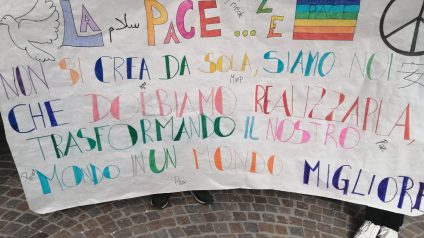 LA سلام PACE... È PACE
NON SI CREA DA SOLA, SIAMO NOI
Мир
CHE DOBBIAMO REALIZZARLA,
TRASFORMANDO IL NOSTRO
MONDO IN UN MONDO MIGLIORE
Pax